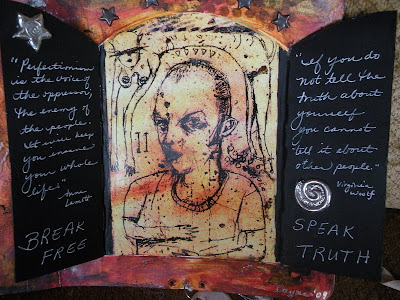 "Perfectionism
is the voice of
the oppressor,
the enemy of
the people.
It will keep
you insane
your whole
life."
Anne
Lamott
BREAK
FREE
11
"If you do
not tell the
truth about
yourself
you cannot
tell it about
other people."
Virginia
Woolf
SPEAK
TRUTH
'09